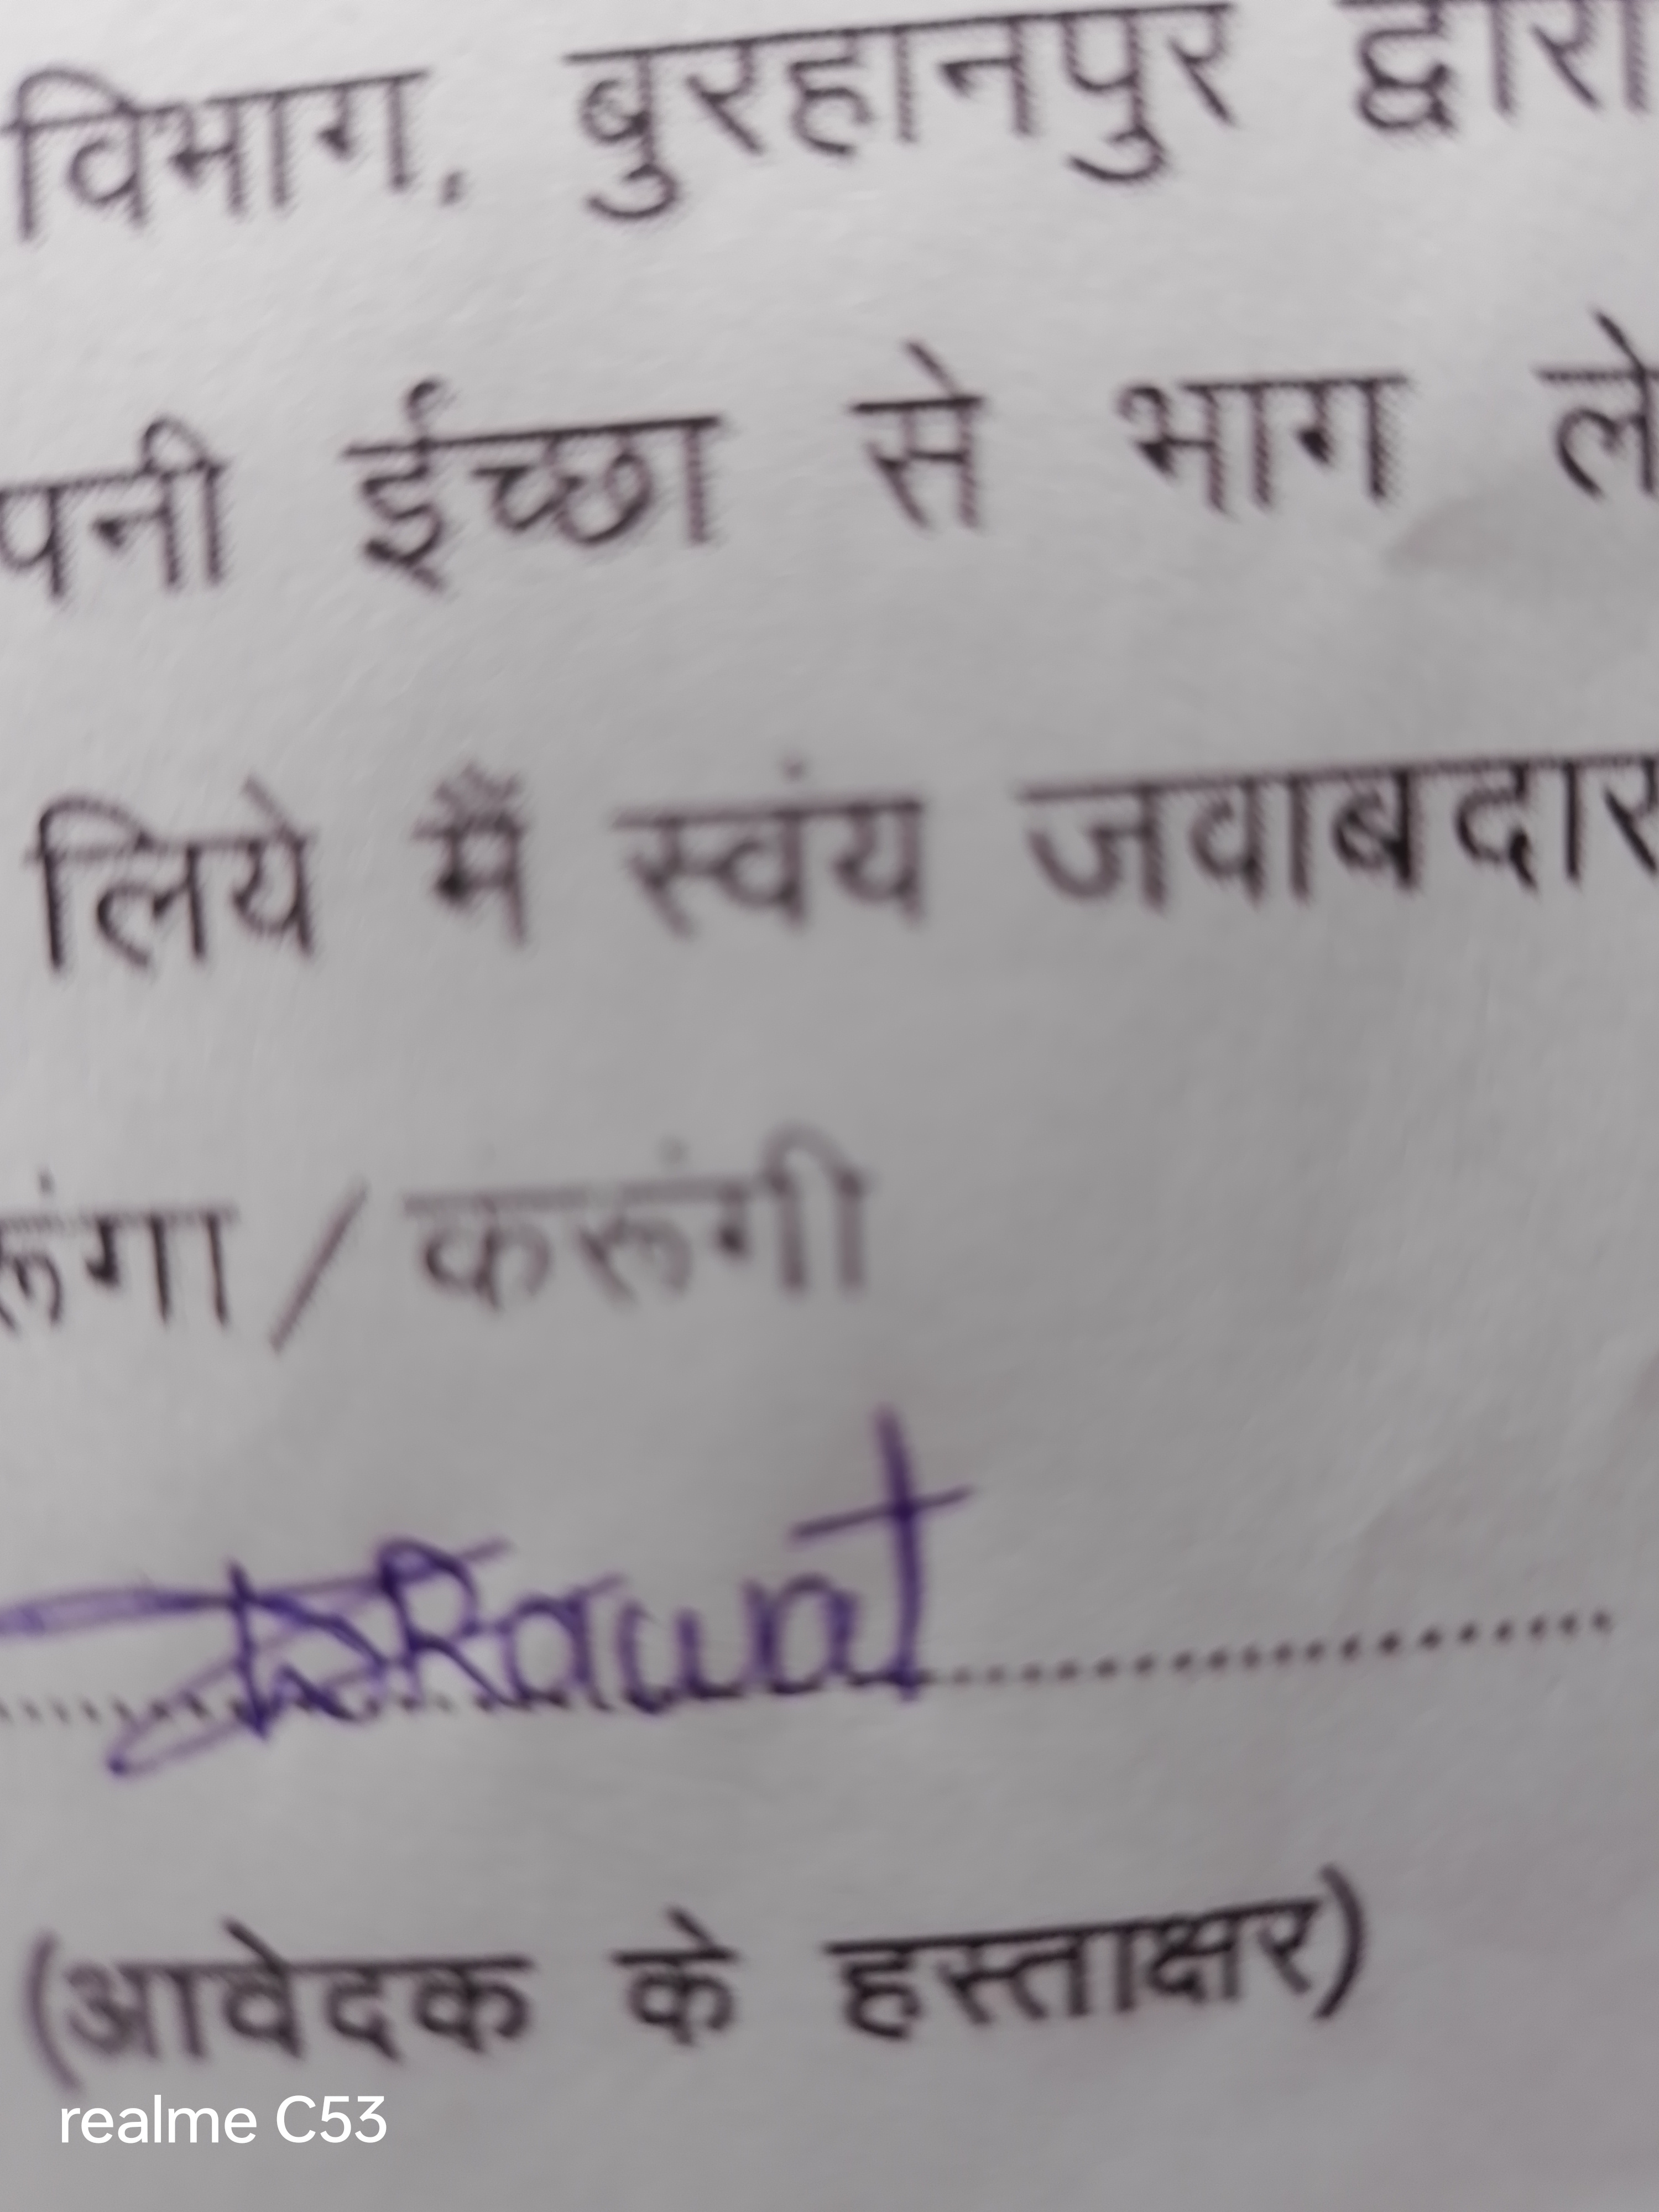 विभाग, बुरहानपुर द्वारा
पनी ईच्छा से भाग ले
लिये मैं स्वंय जवाबदार
रूंगा / करूंगी
Rawat
(आवेदक के हस्ताक्षर)
realme C53